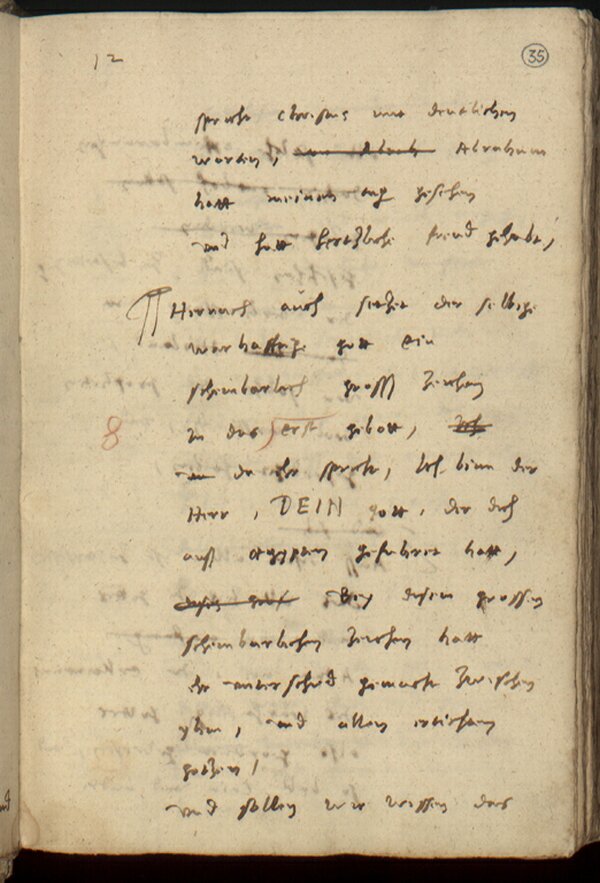 12
35
spricht Christus mit deutlichen
worten, Abraham
hatt meinen tag gesehen
und hatt hertzliche freud gehabt,
Hernach auch setzet der selbige
warhafftige gott ein
scheinbarlich gross zeichen
8
in das erst gebott, Ich
da ehr spricht, Ich binn der
Herr, DEIN gott, der dich
auß egypten gefuhret hatt,
Bey disem grossen
scheinbarlichen zeichen hatt
ehr unterschid gemacht zwischen
yhm, und allen ertichten
gottern,
und sollen wir wissen das